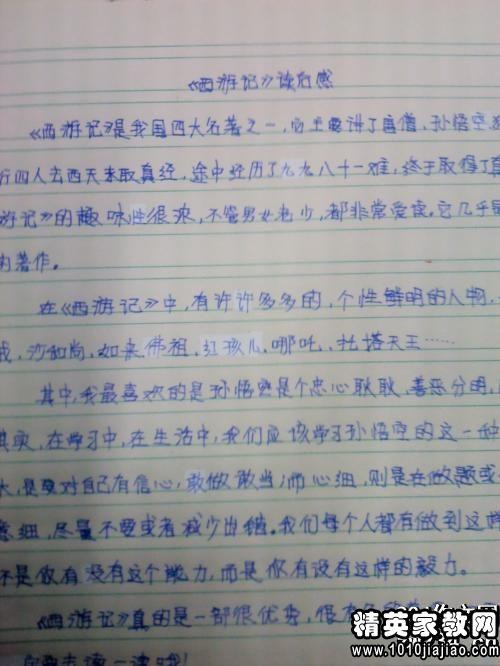 《西游记》读后感
《西游记》是我国四大名著之一，它主要讲了唐僧、孙悟空
行四人去西天求取真经，途中经历了九九八十一难，终于取得了真
游记》的趣味性很浓，不管男女老少，都非常爱读。它几乎
的著作。
在《西游记》中，有许许多多的，个性鲜明的人物，
戒，沙和尚，如来佛祖，红孩儿，哪吒，托塔天王……
其中，我最喜欢的是孙悟空是个忠心耿耿、善恶分明，
其实，在学习中，在生活中，我们应该学习孙悟空的这一种
大，是要对自己有信心，敢做敢当；而心细，则是在做题或
意细，尽量不要或者减少出错。我们每个人都有做到这样
不是你有没有这个能力，而是你有没有这样的毅力。
《西游记》真的是一部很优秀，很
读一读哦！
精英家教网
www.1010jiajiao.com